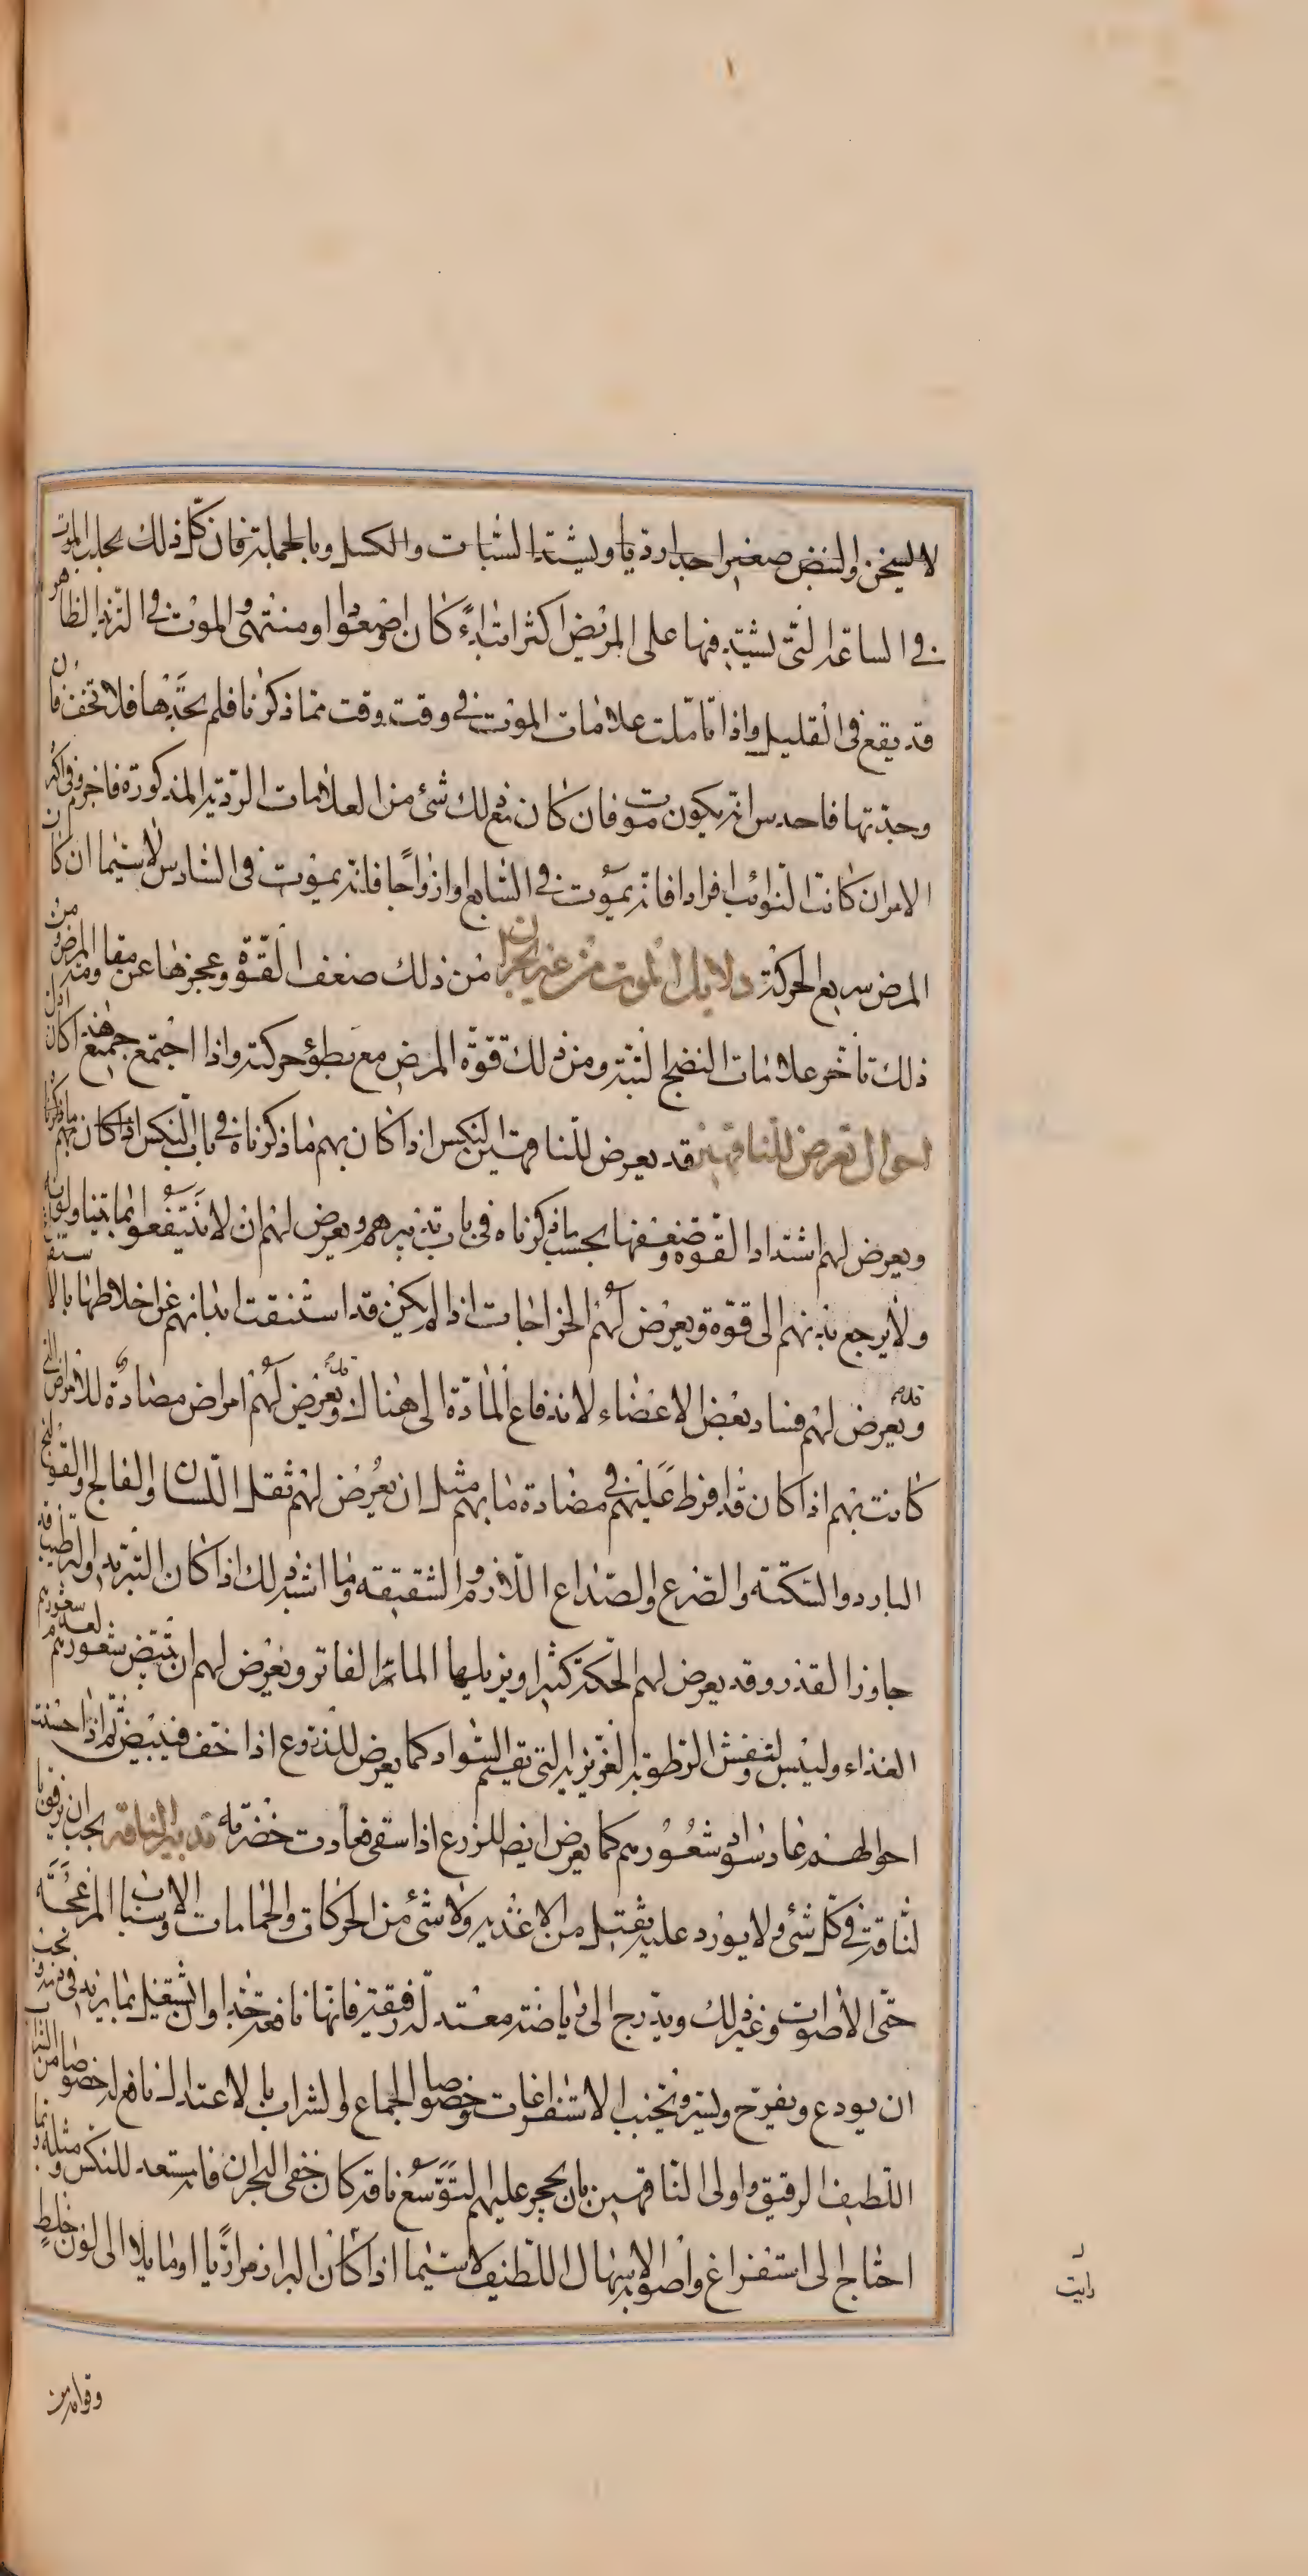 لا يسخن والنبض صغيرا جدا رديا ويشتد السبات والكسل وبالجملة فان كل ذلك يجلب الموت
في الساعة التي يشتد فيها على المريض اكثر ابتداء كان او صعودا او منتهى والموت في التزيد الظاهر
قد يقع في القليل واذا تاملت علامات الموت في وقت وقت مما ذكرنا فلم تجدها فلا تخف فان
وجدتها فاحدس انه يكون موت فان كان مع ذلك شئ من العلامات الردية المذكورة فاجزم وفى اكثر
الامر ان كانت النوائب افرادا فانه يموت في السابع او ازواجا فانه يموت في السادس لا سيما ان كان
المرض سريع الحركة دلايل الموت من غير بحران من ذلك ضعف القوة وعجزها عن مقاومة المرض ومن
ذلك تأخر علامات النضج البتة ومن ذلك قوة المرض مع بطؤ حركته واذا اجتمع جميع هذا كان ادل
احوال تعرض للناقهين قد يعرض للناقهين النكس اذا كان بهم ما ذكرناه في باب النكس اذا كان بهم ما ذكرنا
ويعرض لهم اشتداد القوة وضعفها بحسب ما ذكرناه في باب تدبيرهم ويعرض لهم ان لا ينتفعوا بما يتناولونه
ولا يرجع بدنهم الى قوة ويعرض لهم الخراجات اذا لم يكن قد استنقت ابدانهم عن اخلاطها بالاستفراغ
وقد يعرض لهم فساد بعض الاعضاء لاندفاع المادة الى هناك وقد يعرض لهم امراض مضادة للامراض التي
كانت بهم اذا كان قد افرط عليهم في مضادة ما بهم مثل ان يعرض لهم ثقل اللسان والفالج والقولنج
البارد والسكتة والصرع والصداع اللازم والشقيقة وما اشبه ذلك اذا كان التبريد والترطيب قد
جاوز القدر وقد يعرض لهم الحكة كثيرا ويزيلها الماء الفاتر ويعرض لهم ان تبيض شعورهم لعدم شعورهم
الغذاء وليبس وتفش الرطوبة الغريزية التي تقيم السواد كما يعرض للزروع اذا جف فيبيض ثم اذا حسنت
احوالهم عاد سواد شعورهم كما يعرض ايضا للزرع اذا سقى فعادت خضرته تدبير الناقه يجب ان يرفق با
لناقه في كل شئ ولا يورد عليه ثقيل من الاغذية ولا شئ من الحركات والحمامات والاسباب المزعجة
حتى الاصوات وغير ذلك ويدرج الى رياضة معتدلة رفيقة فانها نافعة جدا وان يشتغل بما يزيد في دمه ويجب
ان يودع ويفرح ويسر ويجنب الاستفراغات وخصوصا الجماع والشراب بالاعتدال نافع له خصوصا من الشراب
اللطيف الرقيق واولى الناقهين بان يحجر عليهم التوسع ناقه كان خفي البحران فانه مستعد للنكس ومثله ربما
احتاج الى استفراغ واصوبه الاسهال اللطيف لا سيما اذا كان البراز مراريا او مايلا الى لون خلط
وقوامه من
رايت